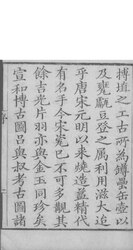 摶埴之工古所為罇罍缶壺以
及甕甒豆登之屬利用滋大迨
乎唐宋元明以來燒造益精代
有名手今宋瓷已不可多觀其
餘吉光片羽亦與金玉同珍矣
宣和博古圖呂與叔考古圖諸